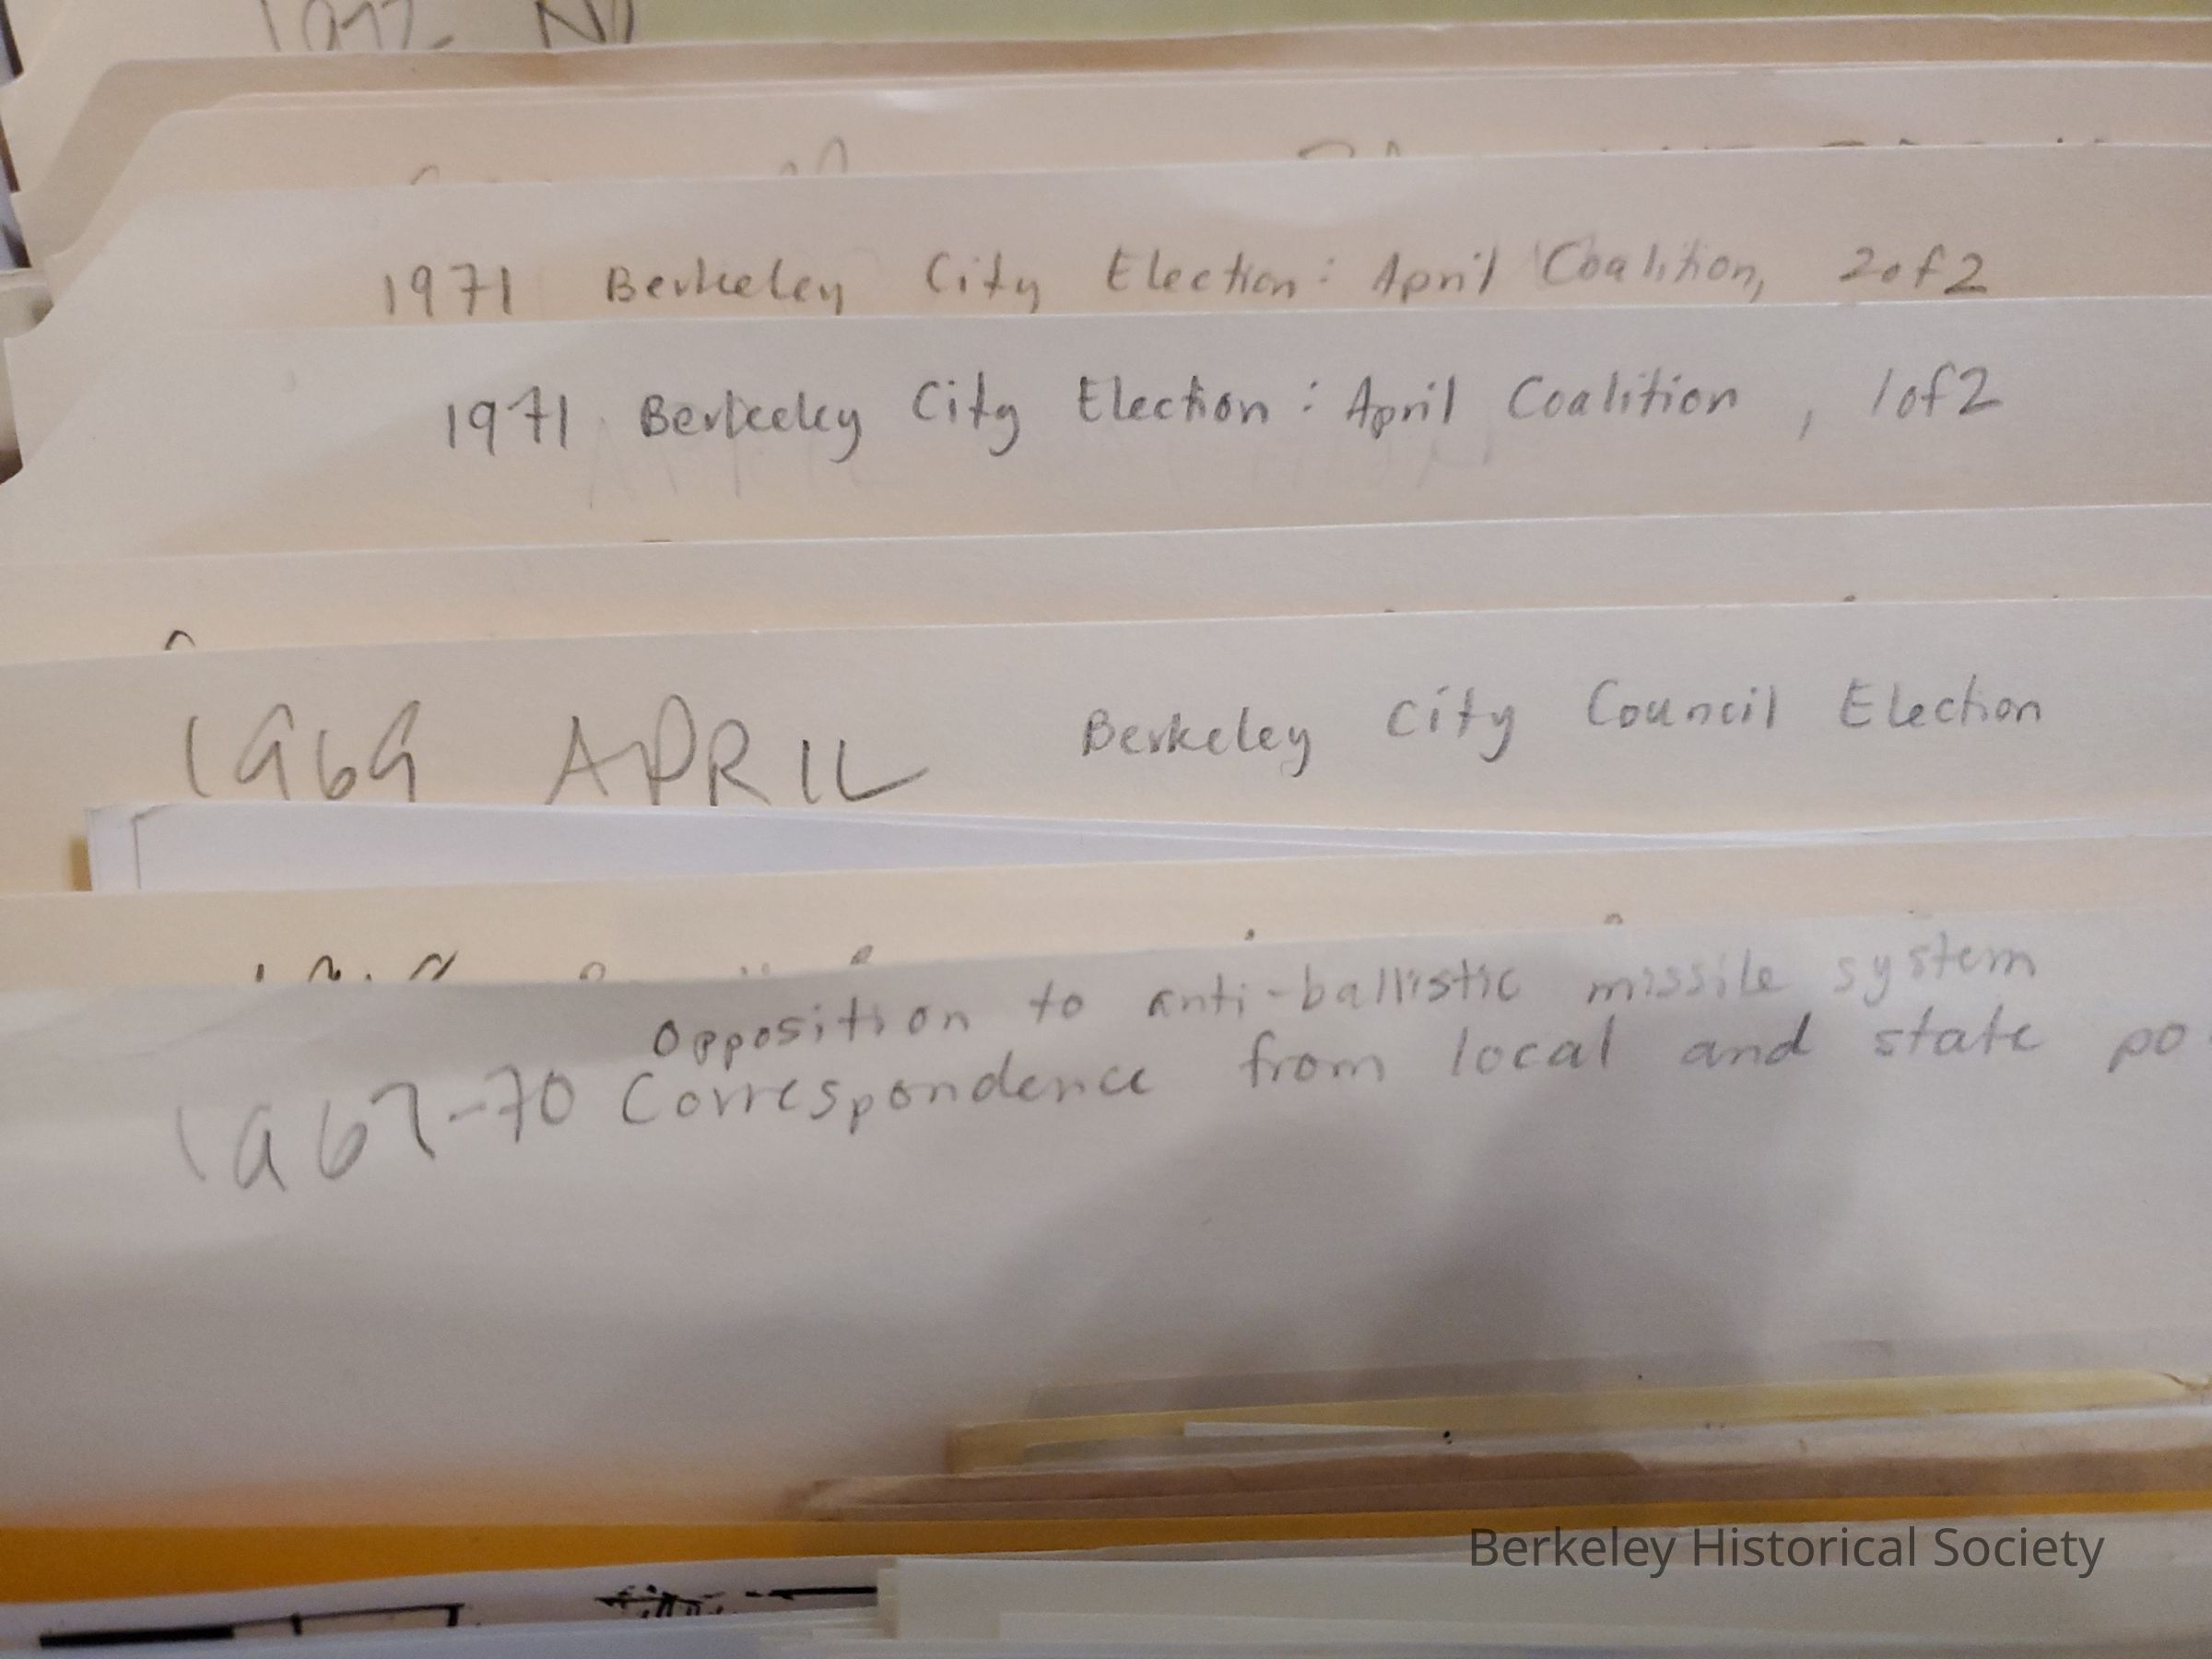 1971 Berkeley City Election: April Coalition, 2 of 2
1971 Berkeley City Election: April Coalition, 1 of 2
1969 APRIL Berkeley City Council Election
Opposition to anti-ballistic missile system
1967-70 Correspondence from local and state
Berkeley Historical Society